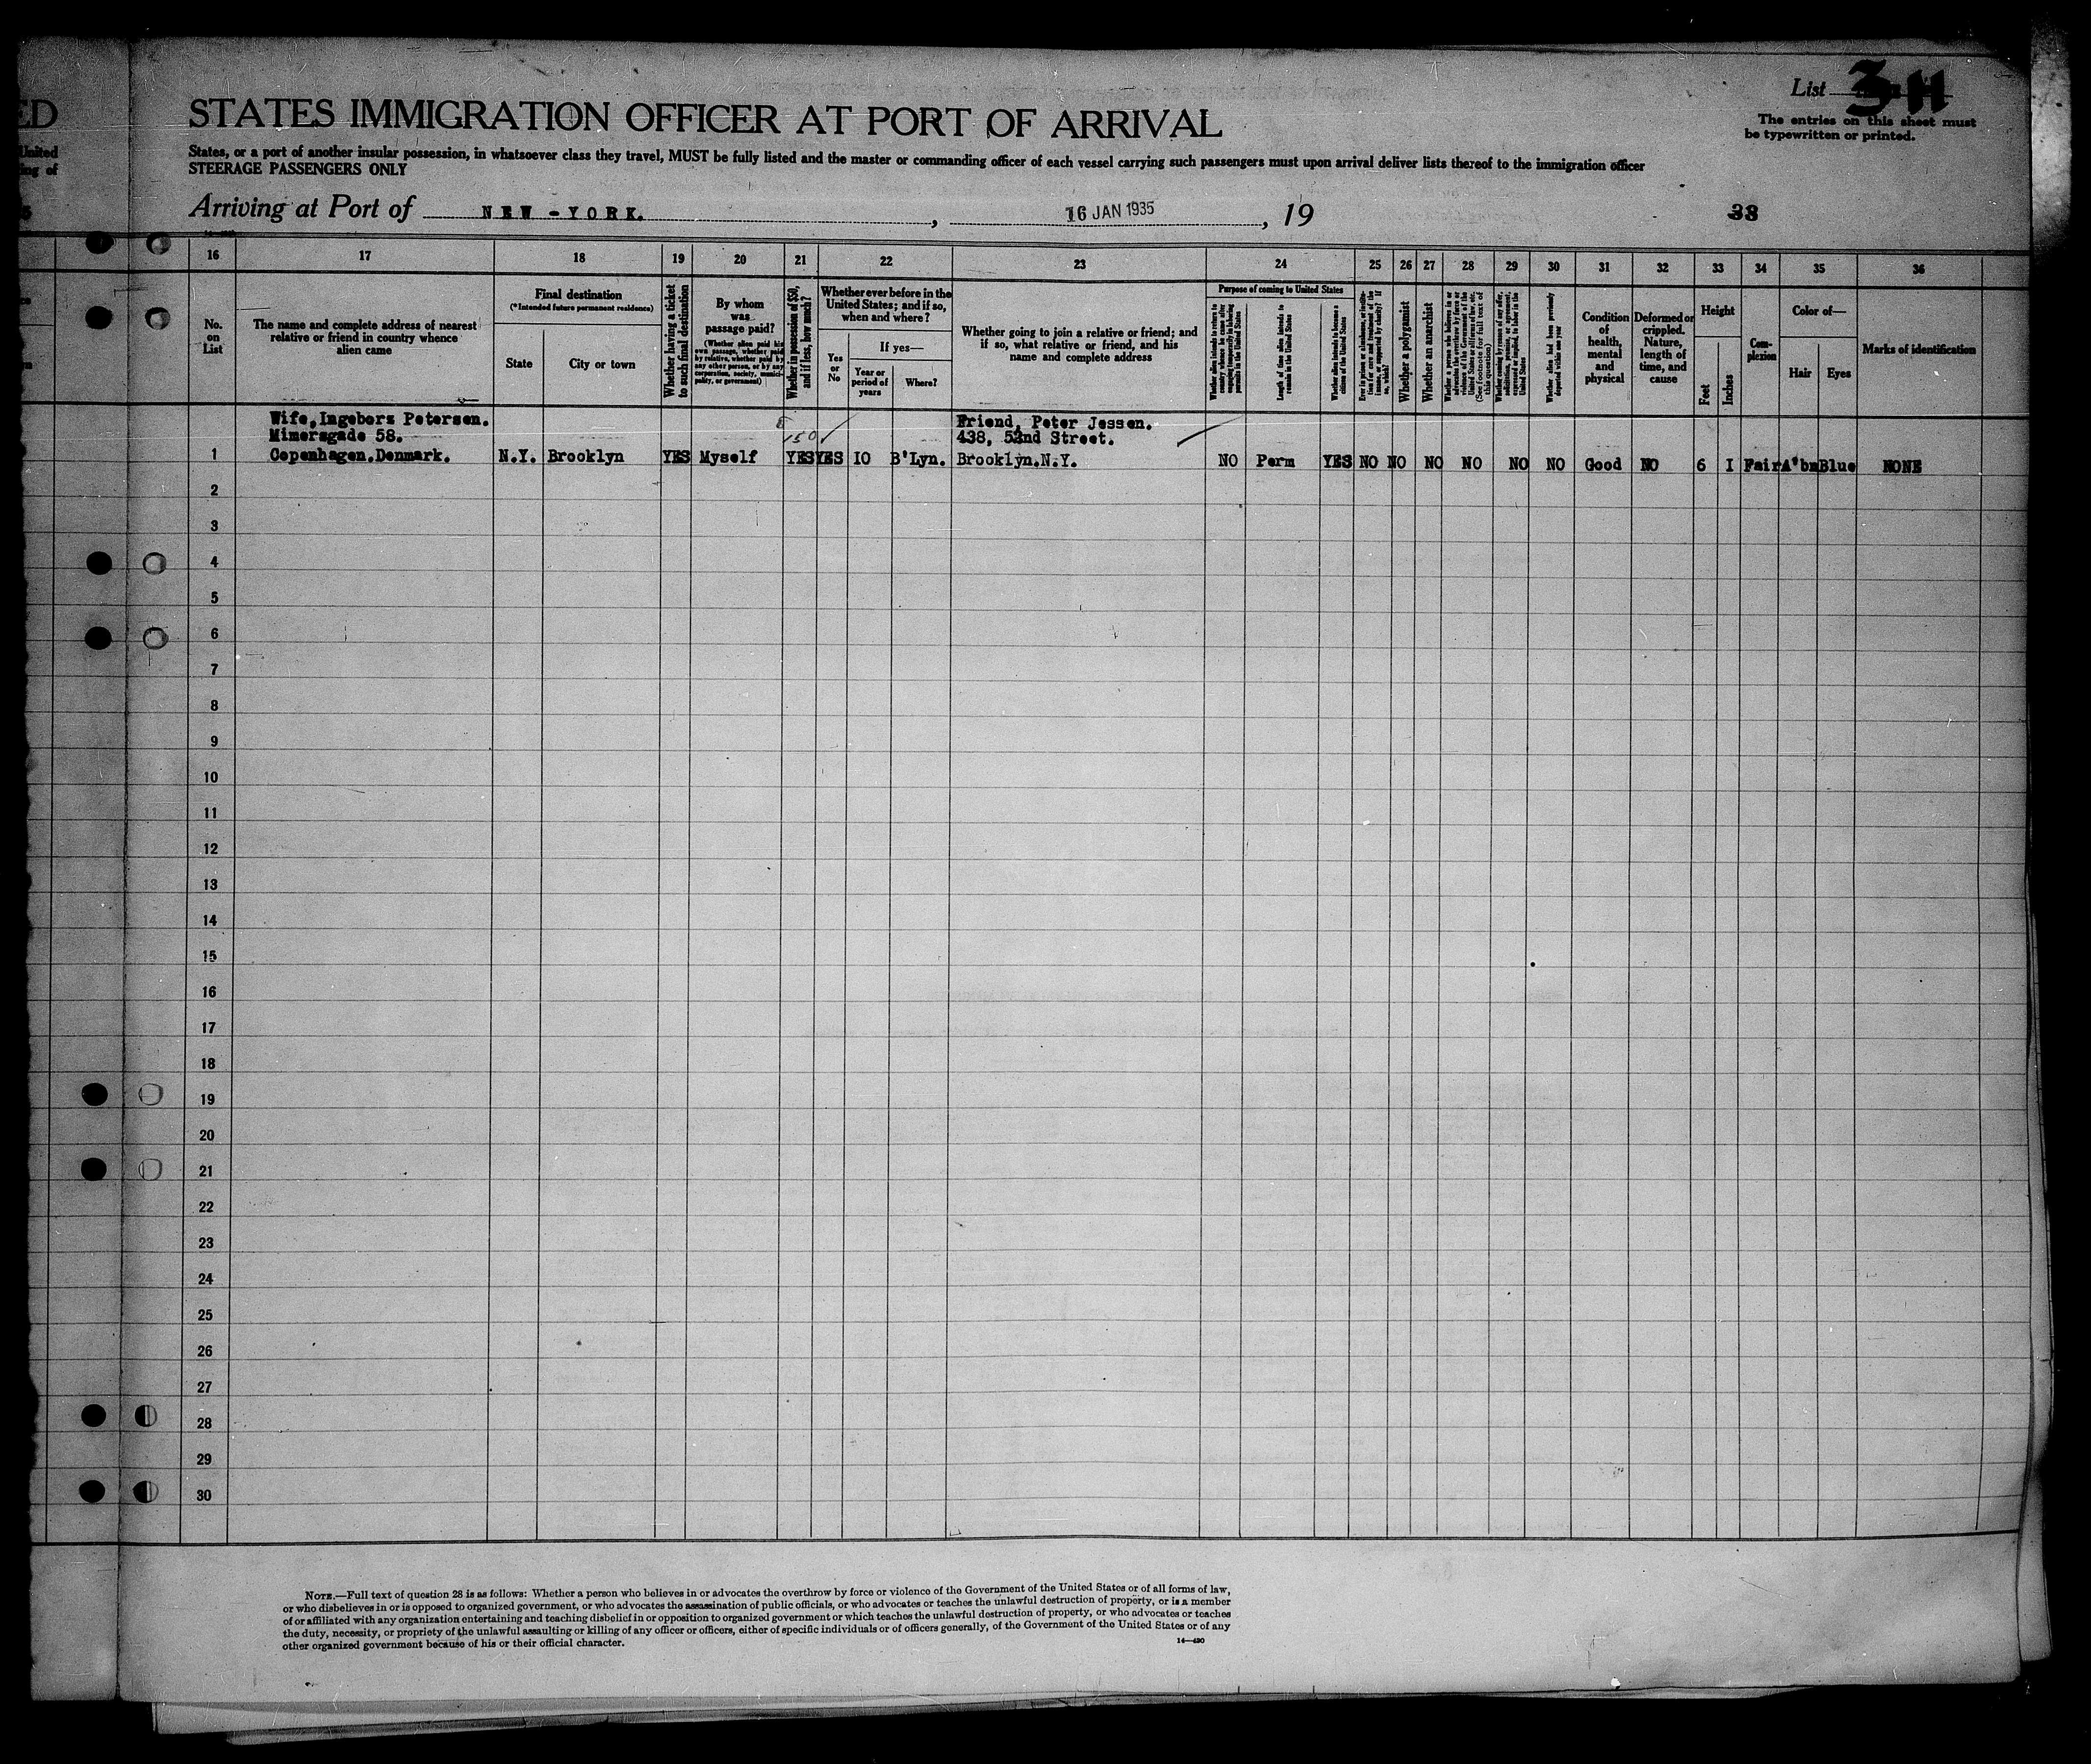 ED
United
ing of
List 3 11
The entries on this sheet must
be typewritten or printed.
STATES IMMIGRATION OFFICER AT PORT OF ARRIVAL
States, or a port of another insular possession, in whatsoever class they travel, MUST be fully listed and the master or commanding officer of each vessel carrying such passengers must upon arrival deliver lists thereof to the immigration officer
STEERAGE PASSENGERS ONLY
Arriving at Port of NEW-YORK. , 16 JAN 1935 , 19
38
16 17 18 19 20 21 22 23 24 25 26 27 28 29 30 31 32 33 34 35 36
No. on List
The name and complete address of nearest relative or friend in country whence alien came
Final destination
(*Intended future permanent residence)
State
City or town
Whether having a ticket to such final destination
By whom was passage paid?
(Whether alien paid his own passage, whether paid by relative, whether paid by any other person, or by any corporation, society, municipality, or government)
Whether in possession of $50, and if less, how much?
Whether ever before in the United States; and if so, when and where?
Yes or No
If yes—
Year or period of years
Where?
Whether going to join a relative or friend; and if so, what relative or friend, and his name and complete address
Purpose of coming to United States
Whether alien intends to return to country whence he came after engaging temporarily in laboring pursuits in the United States
Length of time alien intends to remain in the United States
Whether alien intends to become a citizen of the United States
Whether a polygamist
Whether an anarchist
(See footnote for full text of this question)
Whether alien had been previously deported within one year
Condition of health, mental and physical
Deformed or crippled. Nature, length of time, and cause
Height
Feet
Inches
Complexion
Color of—
Hair
Eyes
Marks of identification
Wife, Ingeborg Petersen.
Mimersgade 58.
Copenhagen.Denmark.
150
Friend, Peter Jessen.
438, 52nd Street.
1 N.Y. Brooklyn YES Myself YES YES IO B'Lyn. Brooklyn.N.Y. NO Perm YES NO NO NO NO NO NO Good NO 6 I Fair A'bn Blue NONE
2
3
4
5
6
7
8
9
10
11
12
13
14
15
16
17
18
19
20
21
22
23
24
25
26
27
28
29
30
NOTE.—Full text of question 28 is as follows: Whether a person who believes in or advocates the overthrow by force or violence of the Government of the United States or of all forms of law,
or who disbelieves in or is opposed to organized government, or who advocates the assassination of public officials, or who advocates or teaches the unlawful destruction of property, or is a member
of or affiliated with any organization entertaining and teaching disbelief in or opposition to organized government or which teaches the unlawful destruction of property, or who advocates or teaches
the duty, necessity, or propriety of the unlawful assaulting or killing of any officer or officers, either of specific individuals or of officers generally, of the Government of the United States or of any
other organized government because of his or their official character.
14—420